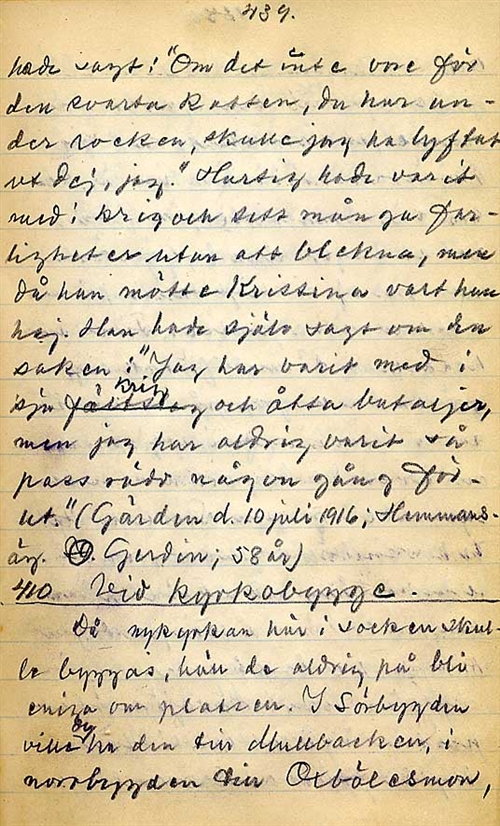 439.
hade sagt: "Om det inte vore för
den svarta katten, du har un-
der rocken, skulle jag ha lyftat
ut dej, jag." Hurtig hade varit
med i krig och sett många far-
ligheter utan att blekna, men
då han mötte Kristina vart han
haj. Han hade själv sagt om den
saken: "Jag har varit med i
krig
sju fältslag och åtta bataljer,
men jag har aldrig varit så
pass rädd någon gång för-
ut." (Gården d. 10 juli 1916; Hemmans-
äg. Gerdin; 58 år)
410 Vid kyrkobygge.
Då nykyrkan här i socken skul-
le byggas, höll de aldrig på bli
eniga om platsen. I Sörbygden
ville dy ha den till Mullbacken, i
norrbygden till Oxbölesmon,